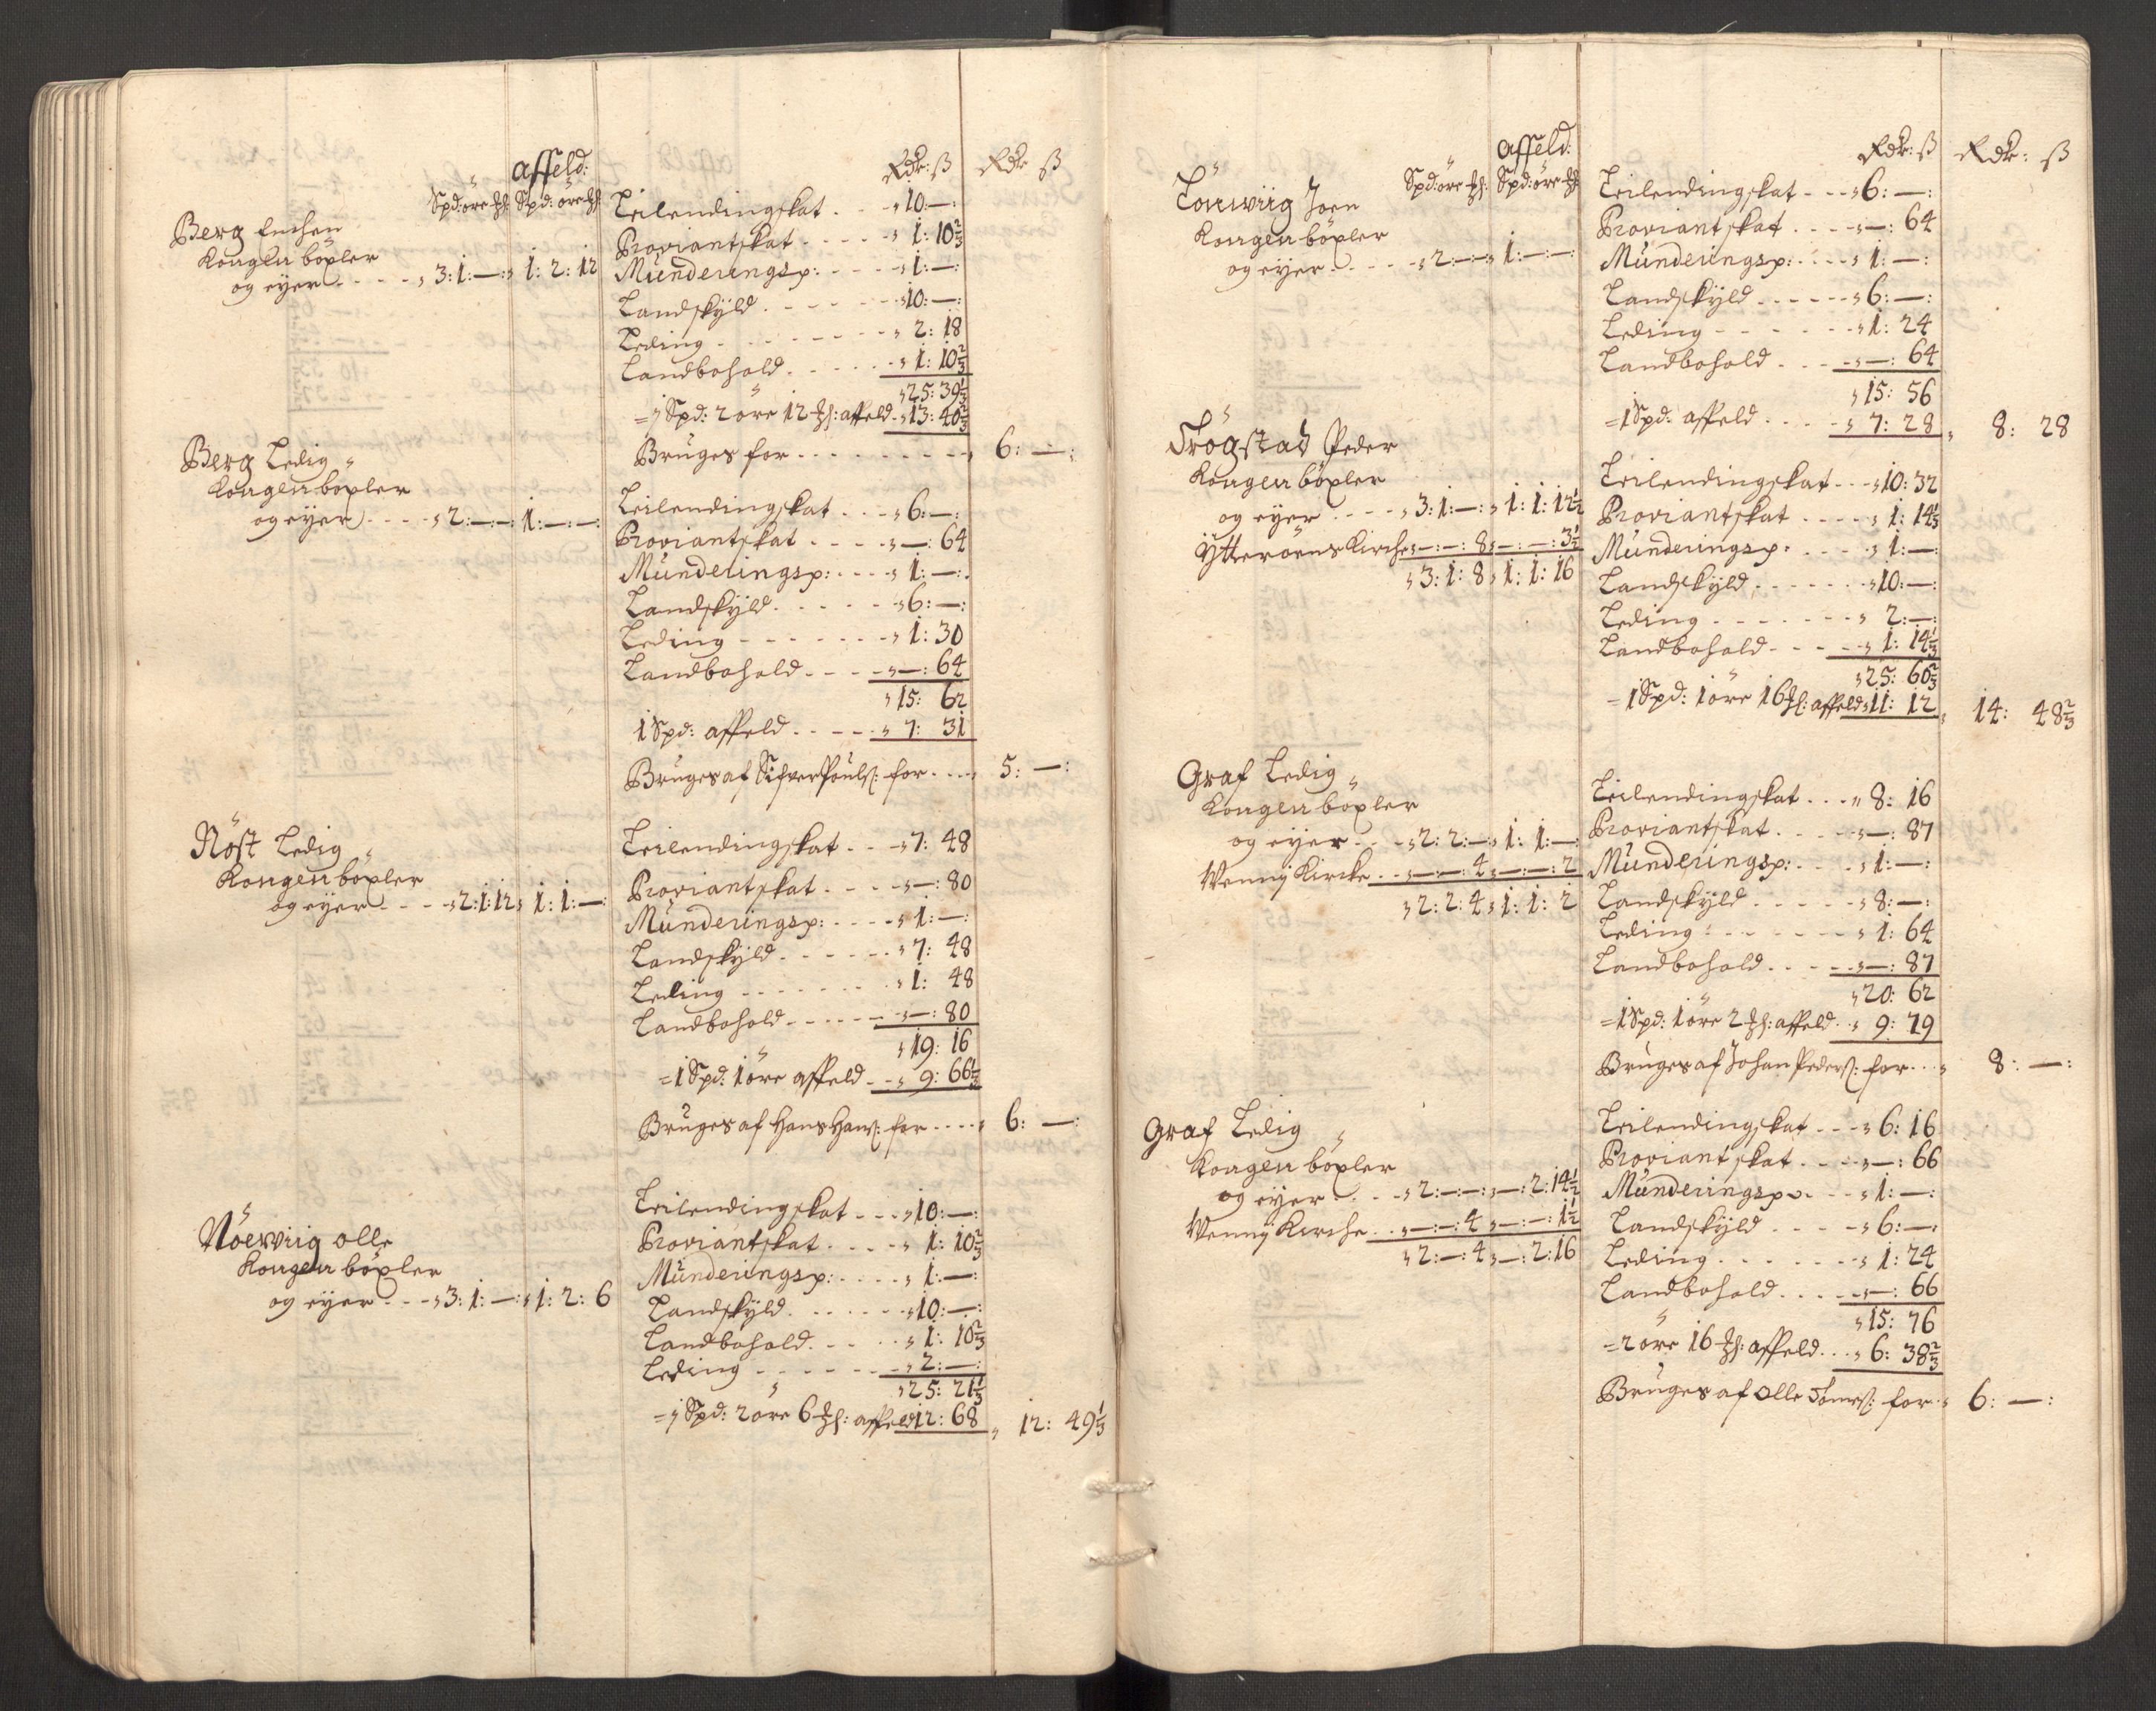 affeld:
Spd: öre ßl: Spd: öre ßl
Rdr: ß Rdr ß
Berg Enchen
Kongen böxler
og eyer - - - - „ 3: 1: — „ 1: 2: 12
Leilendingskat . . . „ 10: —:
Proviantskat . . . . . „ 1: 10 2/3
Münderingsp: . . . . . „ 1: —:
Landskyld . . . . . . „ 10: —:
Leding . . . . . . . „ 2: 18
Landbohold . . . . . „ 1: 10 2/3
„ 25: 39 1/3
= 1 Spd: 2 öre 12 ßl: affeld . „ 13: 40 2/3
Bruges for . . . . . . . . . „ 6: —:
Berg Ledig „
Kongen böxler
og eyer . . . . „ 2: —: —: 1: —: —:
Leilendingskat . . . „ 6: —:
Proviantskat . . . . „ —: 64
Münderingsp: . . . . „ 1: —:
Landskyld . . . . . „ 6: —:
Leding . . . . . . . „ 1: 30
Landbohold . . . . „ —: 64
„ 15: 62
1 Spd: affeld . . . . . „ 7: 31
Bruges af Sifver Poulss: for . . . . „ 5: —:
Röst Ledig „
Kongen böxler
og eyer . . . . „ 2: 1: 12 „ 1: 1: —:
Leilendingskat . . . „ 7: 48
Proviantskat . . . . „ —: 80
Münderingsp: . . . . . „ 1: —:
Landskyld . . . . . . „ 7: 48
Leding . . . . . . . „ 1: 48
Landbohold . . . . . . „ —: 80
„ 19: 16
= 1 Spd: 1 öre affeld . . „ 9: 66 1/2
Bruges af Hans Hanss: for . . . . „ 6: —:
Nöervviig Olle
Kongen böxler
og eyer . . . „ 3: 1: —: „ 1: 2: 6
Leilendingskat . . . „ 10: —:
Proviantskat . . . . „ 1: 10 2/3
Münderingsp: . . . . „ 1: —:
Landskyld . . . . . . „ 10: —:
Landbohold . . . . . „ 1: 10 2/3
Leding . . . . . . . „ 2: —:
„ 25: 21 1/3
= 1 Spd: 2 öre 6 ßl: affeld „ 12: 68 „ 12: 49 1/3
affeld:
Spd: öre ßl: Spd: öre ßl
Rdr: ß Rdr: ß
Torvviig Joen
Kongen böxler
og eyer . . . . . „ 2: —: —: „ 1: —: —:
Leilendingskat . . . „ 6: —:
Proviantskat . . . . „ —: 64
Münderingsp: . . . . „ 1: —:
Landskyld . . . . . . „ 6: —:
Leding . . . . . . . „ 1: 24
Landbohold . . . „ —: 64
„ 15: 56
= 1 Spd: affeld . . . . . „ 7: 28 „ 8: 28
Trögstad Peder
Kongen böxler
og eyer . . . . „ 3: 1: —: „ 1: 1: 12 1/2
Ytteröens Kirche „ —: —: 8 „ —: —: 3 1/2
„ 3: 1: 8 „ 1: 1: 16
Leilendingskat . . . „ 10: 32
Proviantskat . . . . . „ 1: 14 1/3
Münderingsp: . . . . . „ 1: —:
Landskyld . . . . . . . „ 10: —:
Leding . . . . . . . „ 2: —:
Landbohold . . . . . „ 1: 14 1/3
„ 25: 60 2/3
= 1 Spd: 1 öre 16 ßl: affeld „ 11: 12 „ 14: 48 2/3
Graf Ledig „
Kongen böxler
og eyer . . . „ 2: 2: —: „ 1: 1: —:
Wenny Kircke . . „ —: —: 4 „ —: —: 2
„ 2: 2: 4 „ 1: 1: 2
Leilendingskat . . . „ 8: 16
Proviantskat . . . . „ —: 87
Münderingsp: . . . . „ 1: —:
Landskyld . . . . . „ 8: —:
Leding . . . . . . . „ 1: 64
Landbohold . . . . „ —: 87
„ 20: 62
= 1 Spd: 1 öre 2 ßl: affeld . . „ 9: 79
Bruges af Johan Pederss: for . . . „ 8: —:
Graf Ledig „
Kongen böxler
og eyer . . . „ 2: —: —: „ —: 2: 14 1/2
Wenny Kirche . . „ —: —: 4 „ —: —: 1 1/2
„ 2: —: 4 „ —: 2: 16
Leilendingskat . . . „ 6: 16
Proviantskat . . . . „ —: 66
Münderingsp: . . . „ 1: —:
Landskyld . . . . . „ 6: —:
Leding . . . . . . . „ 1: 24
Landbohold . . . . . „ —: 66
„ 15: 76
= 2 öre 16 ßl: affeld . . . „ 6: 38 2/3
Bruges af Olle Tomess: for . „ 6: —: